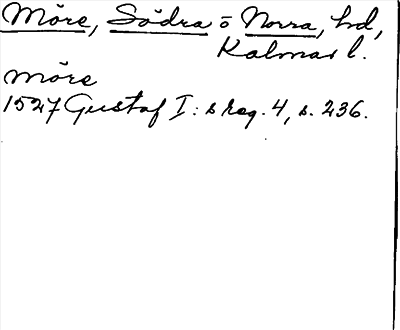 Möre, Södra o Norra, hd,
Kalmar l.
Möre
1527 Gustaf I:s reg. 4, s. 236.